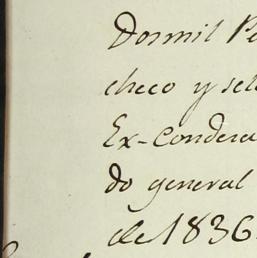 Dosmil Pe
checo y sete
Ex-Condera
do general
de 1836